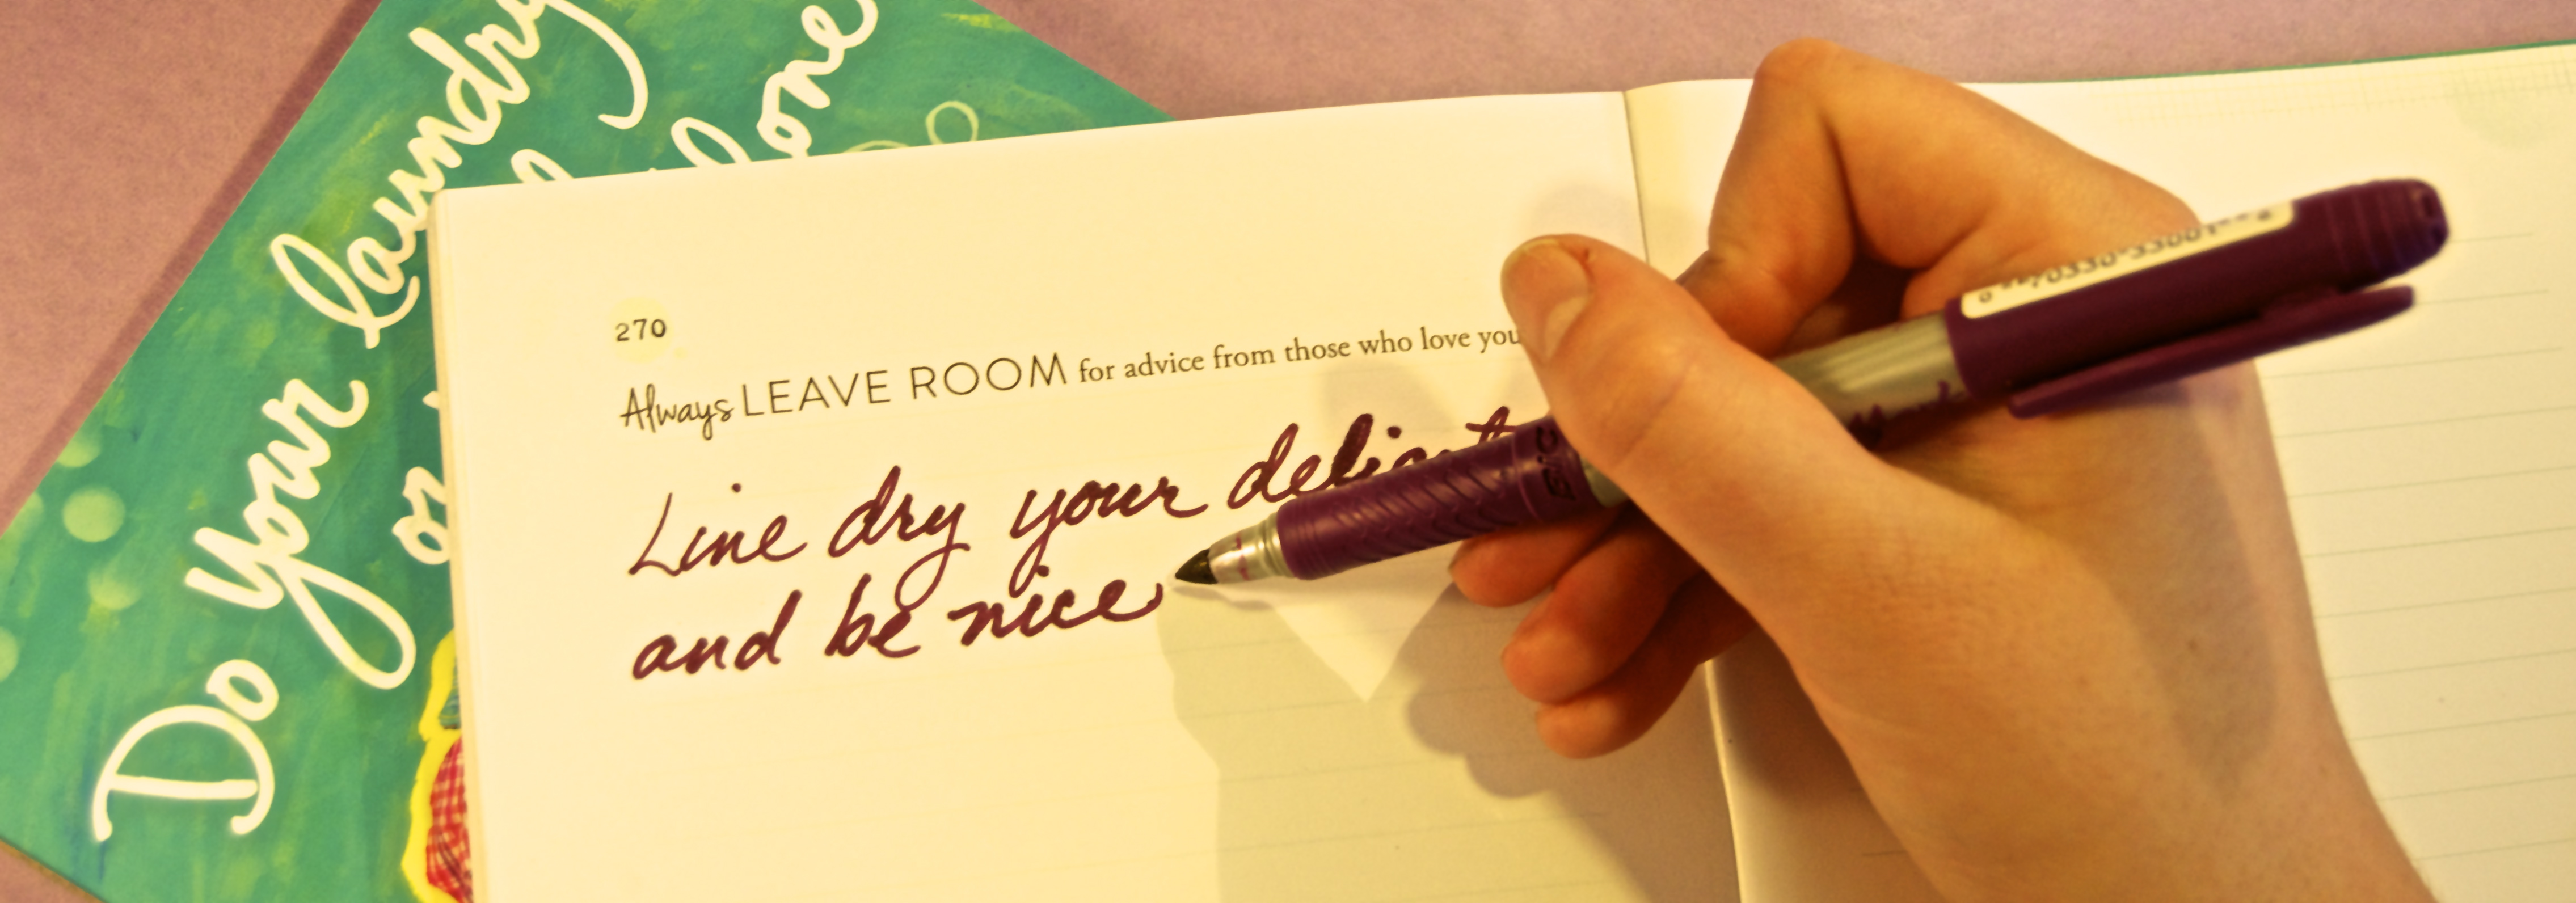 Do your laundry
or
lone
270
Always LEAVE ROOM for advice from those who love you
Line dry your
and be nice
BIC